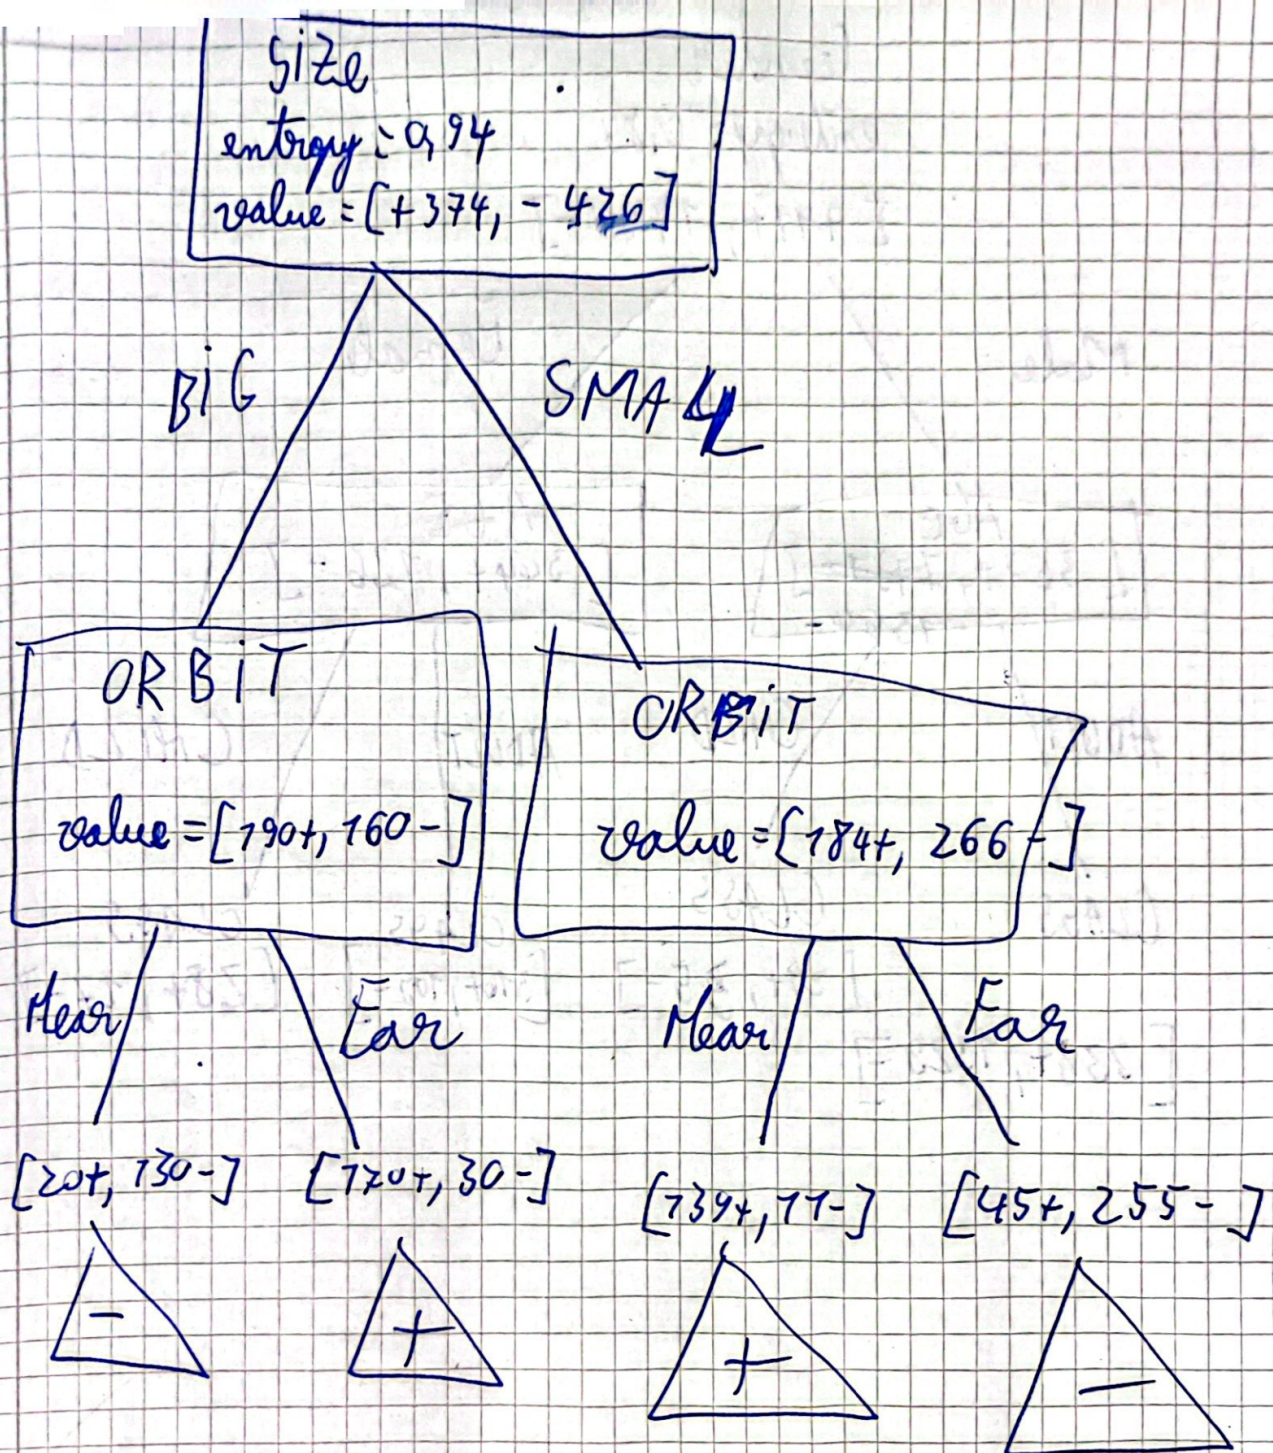 Size
entropy = 0,94
value = [+374, - 426]
BiG
SMALL
ORBiT
value = [190+, 160-]
ORBiT
value = [184+, 266-]
Near
Far
Near
Far
[20+, 130-]
[170+, 30-]
[139+, 11-]
[45+, 255-]
-
+
+
-